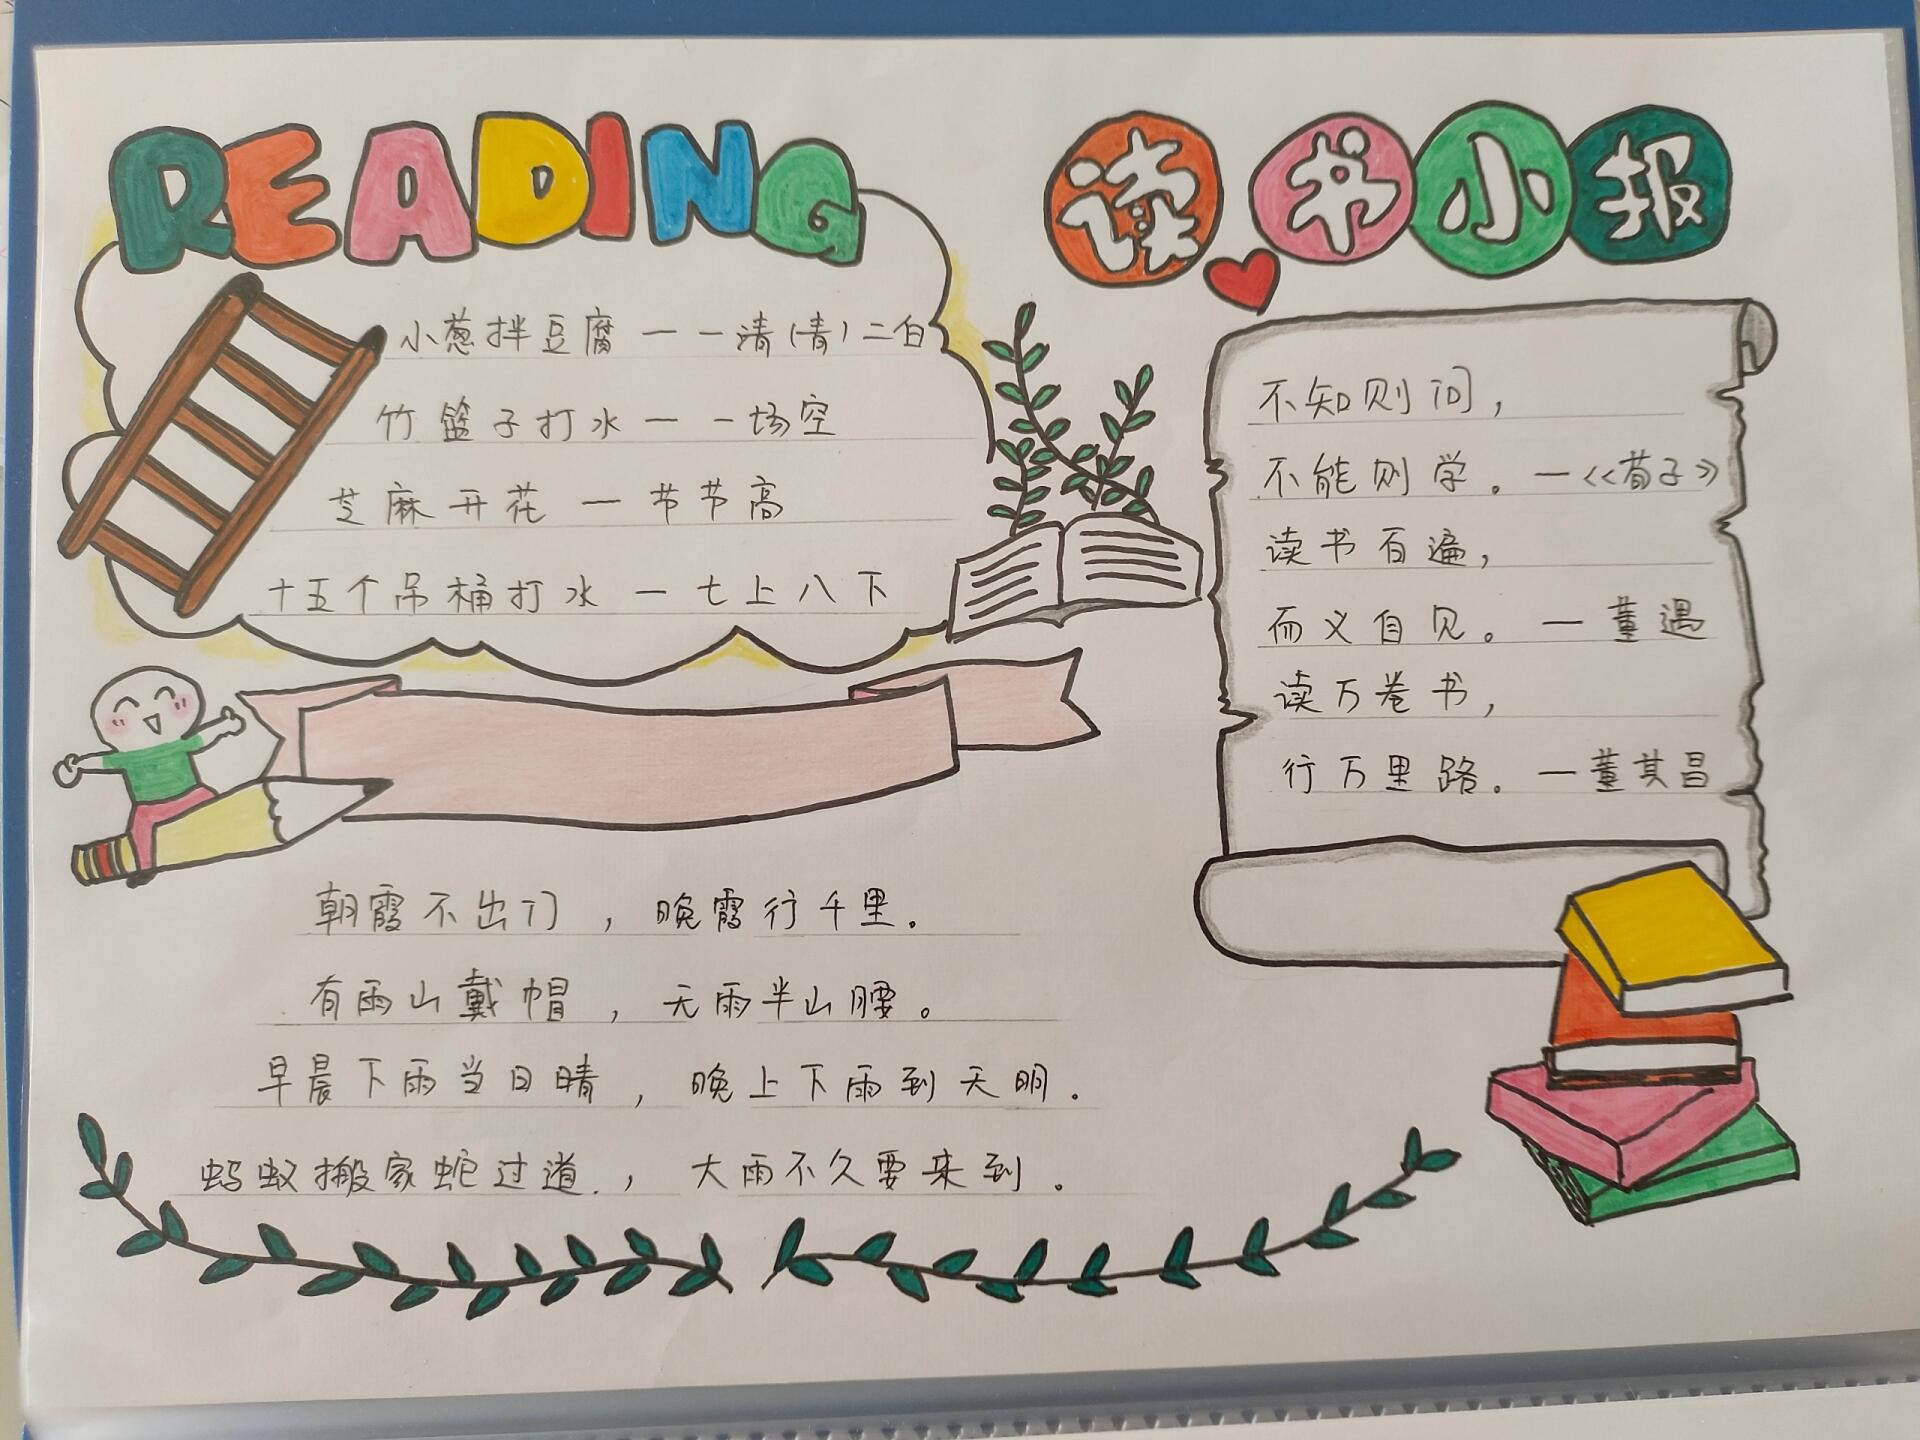 READING
读书小报
小葱拌豆腐一一清(青)二白
竹篮子打水一一场空
芝麻开花一节节高
十五个吊桶打水一七上八下
不知则问，
不能则学。一《荀子》
读书百遍，
而义自见。一董遇
读万卷书，
行万里路。一董其昌
朝霞不出门，晚霞行千里。
有雨山戴帽，无雨半山腰。
早晨下雨当日晴，晚上下雨到天明.
蚂蚁搬家蛇过道.，大雨不久要来到.